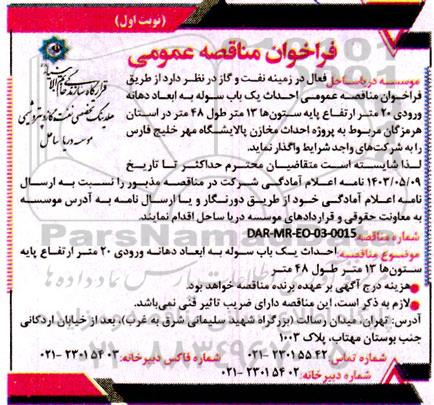 (نوبت اول)
قرارگاه سازندگی خاتم الانبیاء
هلدینگ تخصصی نفت، گاز و پتروشیمی
موسسه دریا ساحل
فراخوان مناقصه عمومی
موسسه دریاساحل فعال در زمینه نفت و گاز در نظر دارد از طریق
فراخوان مناقصه عمومی احداث یک باب سوله به ابعاد دهانه
ورودی ۲۰ متر ارتفاع پایه ستون‌ها ۱۳ متر طول ۴۸ متر در استان
هرمزگان مربوط به پروژه احداث مخازن پالایشگاه مهر خلیج فارس
را به شرکت‌های واجد شرایط واگذار نماید.
لذا شایسته است متقاضیان محترم حداکثر تا تاریخ
۱۴۰۳/۰۵/۰۹ نامه اعلام آمادگی شرکت در مناقصه مذبور را نسبت به ارسال
نامه اعلام آمادگی خود از طریق دورنگار و یا ارسال نامه به آدرس موسسه
به معاونت حقوقی و قراردادهای موسسه دریا ساحل اقدام نمایند.
شماره مناقصه DAR-MR-EO-03-0015
موضوع مناقصه: احداث یک باب سوله به ابعاد دهانه ورودی ۲۰ متر ارتفاع پایه
ستون‌ها ۱۳ متر طول ۴۸ متر
هزینه درج آگهی بر عهده برنده مناقصه خواهد بود.
لازم به ذکر است، این مناقصه دارای ضریب تاثیر فنی نمی‌باشد.
آدرس: تهران، میدان رسالت (بزرگراه شهید سلیمانی شرق به غرب)، بعد از خیابان اردکانی
جنب بوستان مهتاب، پلاک ۱۰۰۳
شماره تماس: ۲۳۰۱۵۵۴۲ -۰۲۱ شماره فاکس دبیرخانه: ۲۳۰۱۵۴۰۳ -۰۲۱
شماره دبیرخانه: ۲۳۰۱۵۴۰۲ -۰۲۱